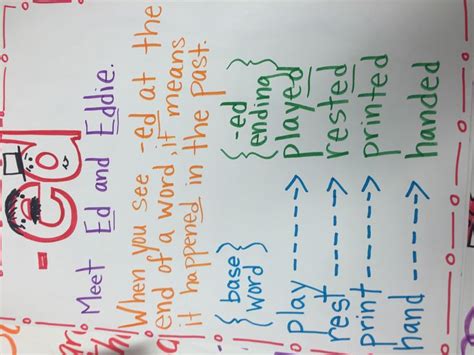 -ed
Meet Ed and Eddie.
When you see -ed at the
end of a word, it means
it happened in the past.
{base word} {-ed ending}
play -----> played
rest -----> rested
print -----> printed
hand -----> handed